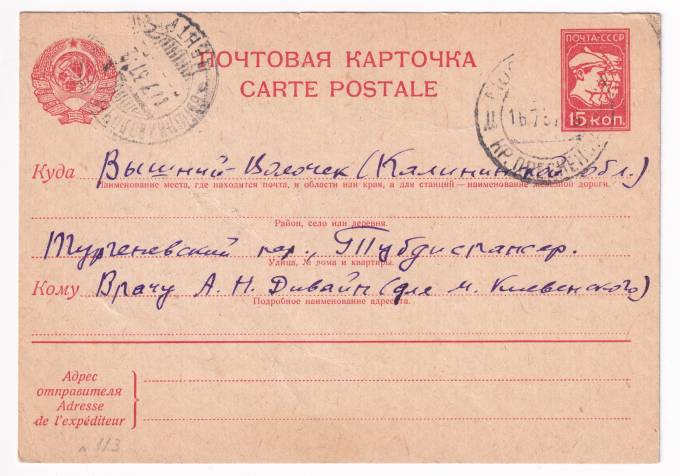 ПОЧТОВАЯ КАРТОЧКА
CARTE POSTALE
ПОЧТА-СССР
15 КОП.
Куда Вышний-Волочек (Калининской обл.)
Наименование места, где находится почта, и области или края, а для станций — наименование железной дороги.
Район, село или деревня.
Тургеневский пер., Тубдиспансер.
Улица, № дома и квартиры.
Кому Врачу А. Н. Дивайн (для М. Климовского)
Подробное наименование адресата.
Адрес
отправителя
Adresse
de l'expéditeur
113